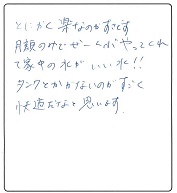 とにかく楽なのがすごくです
月額のみでぜーんぶやってくれ
て家中の水がいい水!!
タンクとかないのがすごく
快適だなと思います。